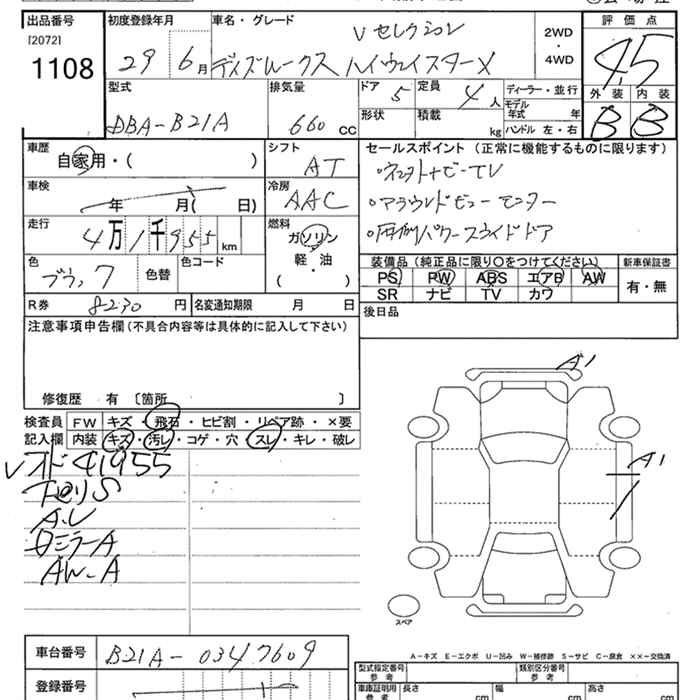 出品番号 初度登録年月 車名・グレード 評価点
[2072] Vセレクション 2WD
1108 29 6月 デイズルークス ハイウェイスターX 4WD 4.5
型式 排気量 ドア 5 定員 4人 ディーラー・並行 外装 内装
DBA-B21A 660 CC 形状 積載 kg モデル年式 年 B B
ハンドル 左・右
車歴 シフト セールスポイント(正常に機能するものに限ります)
自家用・( ) AT ・ネットナビ-TV
車検 年 月( 日) 冷房 AAC ・アラウンドビューモニター
走行 4万1千955km 燃料 ・両側パワースライドドア
ガソリン
軽・油
( )
色 色替 色コード 装備品(純正品に限り○をつけてください) 新車保証書
ブラック PS PW ABS エアB AW 有・無
SR ナビ TV カワ
R券 8230 円 名変通知期限 月 日 後日品
注意事項申告欄(不具合内容等は具体的に記入して下さい)
修復歴 有 〔箇所 〕
検査員 FW キズ・飛石・ヒビ割・リペア跡・×要
記入欄 内装 キズ・汚レ・コゲ・穴・スレ・キレ・破レ
A1
A1
Vオド41955
下回りS
A.U
ドミラーA
AW-A
スペア
A-キズ E-エクボ U-凹み W-補修跡 S-サビ C-腐食 ××-交換済
車台番号 B21A-0347609
登録番号
型式指定番号 参考 類別区分番号 参考
車庫証明用 参考 長さ cm 幅 cm 高さ cm